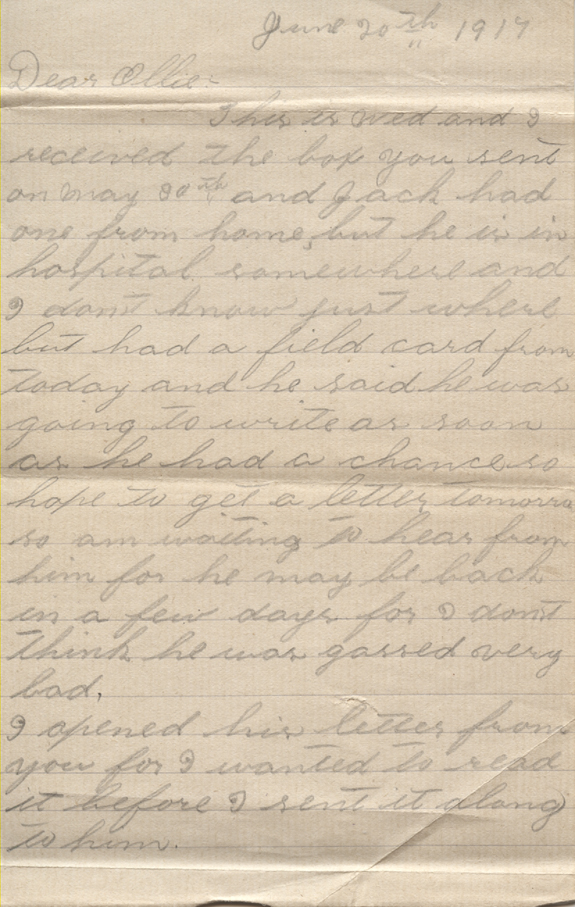 June 20th 1917
Dear Ollie:-
This is Wed and I
received the box you sent
on May 30th and Jack had
one from home, but he is in
hospital somewhere and
I dont know just where
but had a field card from
today and he said he was
going to write as soon
as he had a chance so
hope to get a letter tomorro
so am waiting to hear from
him for he may be back
in a few days for I dont
think he was gassed very
bad.
I opened his letter from
you for I wanted to read
it before I sent it along
to him.